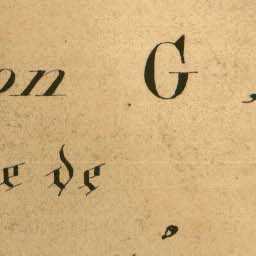 on G,
e de